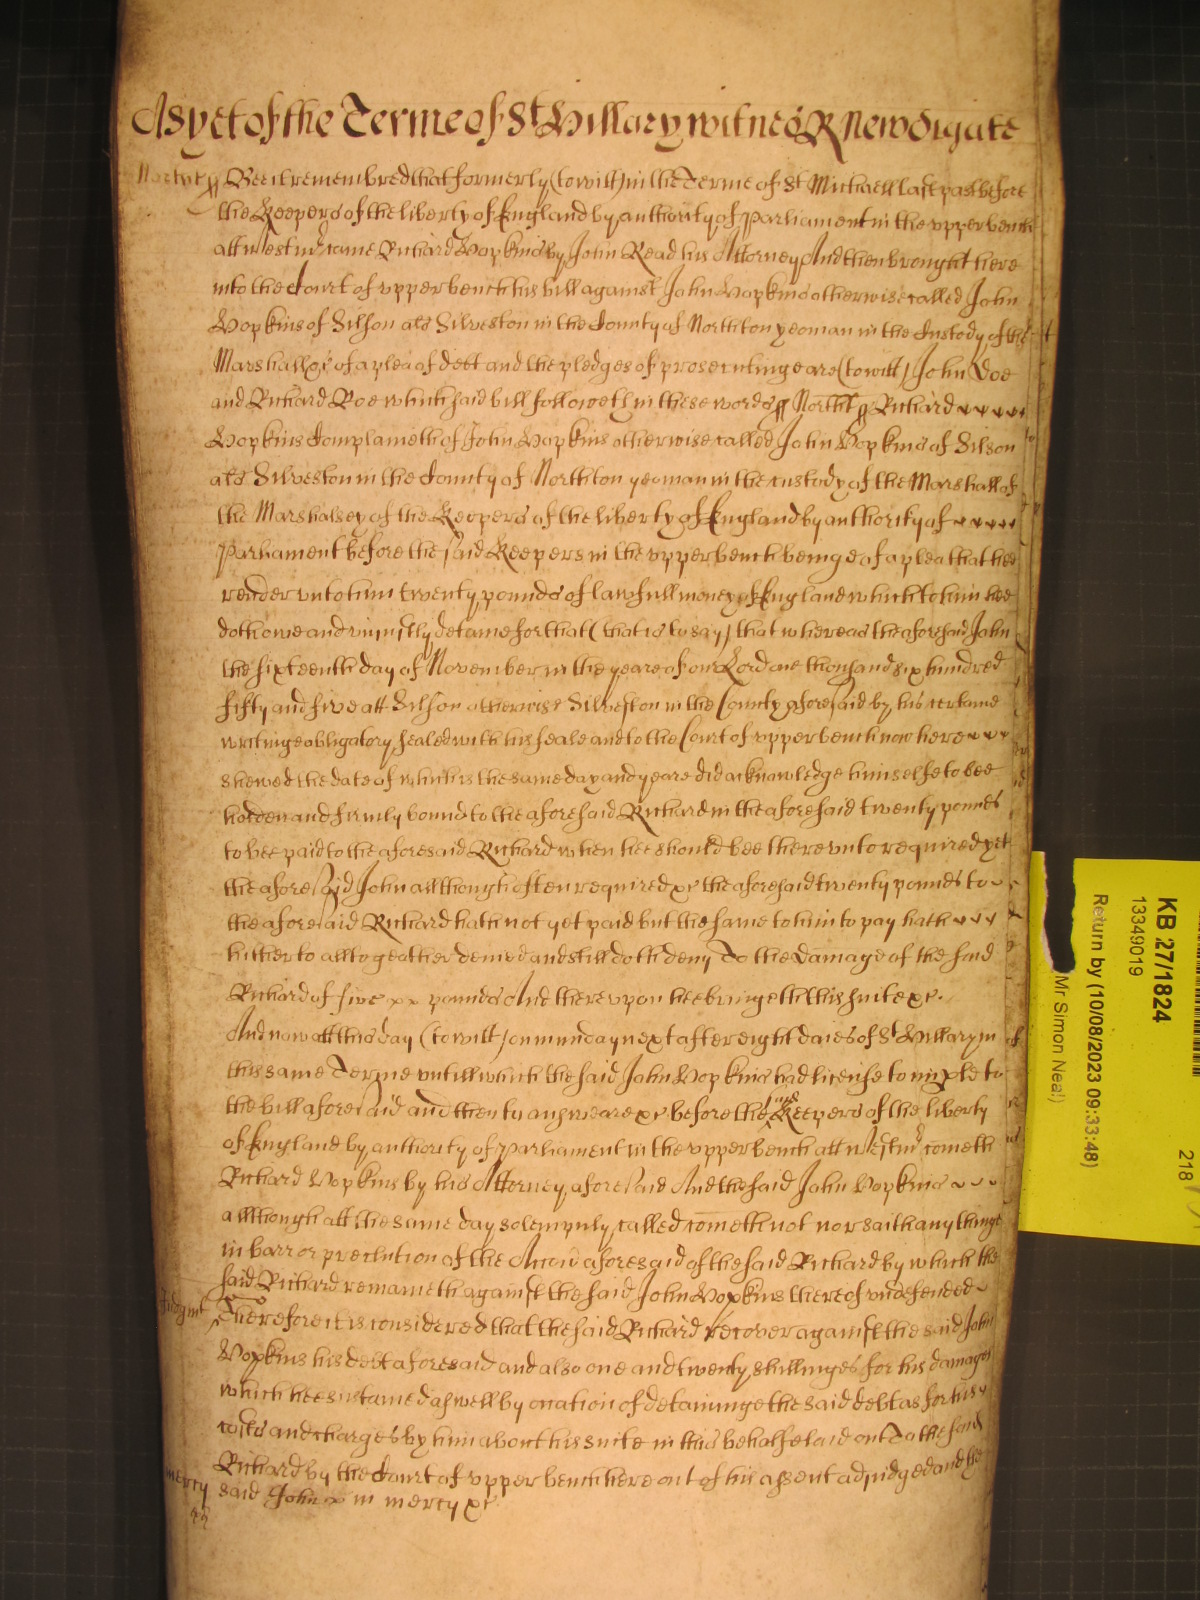 As yet of the Terme of St Hillary witnes R Newdigate
Northt ss Bee it remembred that formerly (to witt) in the Terme of St Michaell last past before
the Keepers of the liberty of England by authority of Parliament in the upper bench
att Westmr came Richard Hopkins by John Read his Attorney And then brought here
into the Court of upper bench his bill against John Hopkins otherwise called John
Hopkins of Silson als Silveston in the County of Northton yeoman in the Custody of the
Marshall &c of a plea of debt and the pledges of prosecutinge are (to witt) John Doe
and Richard Roe which said bill followeth in these words ss Northt ss Richard
Hopkins Complaineth of John Hopkins otherwise called John Hopkins of Silson
als Silveston in the County of Northton yeoman in the custody of the Marshall of
the Marshalsey of the Keepers of the liberty of England by authority of
Parliament before the said Keepers in the upper bench beinge of a plea that hee
render unto him twenty pounds of lawfull money of England which to him hee
doth owe and uniustly detaine for that (that is to say) that whereas the aforesaid John
the sixteenth day of November in the yeare of our Lord one thousand six hundred
fifty and five att Silson otherwise Silveston in the County aforesaid by his certaine
writinge obligatory sealed with his seale and to the Court of upper bench now here
shewed the date of which is the same day and yeare did acknowledge himselfe to bee
holden and firmly bound to the aforesaid Richard in the aforesaid twenty pounds
to bee paid to the aforesaid Richard when hee should bee thereunto required yet
the aforesaid John allthough often required &c the aforesaid twenty pounds to
the aforesaid Richard hath not yet paid but the same to him to pay hath
hitherto alltogeather denied and still doth deny To the damage of the said
Richard of five pounds And thereupon hee bringeth this suite &c.
And now att this day (to witt) on munday next after eight daies of St Hillary in
this same Terme untill which the said John Hopkins had license to imple to
the bill aforesaid and then to answeare &c before the Keepers of the liberty
of England by authority of Parliament in the upper bench att Westmr cometh
Richard Hopkins by his Attorney aforesaid And the said John Hopkins
allthough att the same day solempnly called cometh not nor saith any thinge
in barr or preclution of the Accon aforesaid of the said Richard by which the
said Richard remaineth against the said John Hopkins thereof undefended
Judgmt Therefore it is considered that the said Richard recover against the said John
Hopkins his debt aforesaid and also one and twenty shillinges for his damages
which hee sustained as well by occation of detaininge the said debt as for his
costs and charges by him about his suite in this behalfe laid out To the said
Richard by the Court of upper bench here out of his assent adjudged and the
mercy said John in mercy &c
KB 27/1824
13349019
Return by (10/08/2023 09:33:48)
Mr Simon Neal)
218